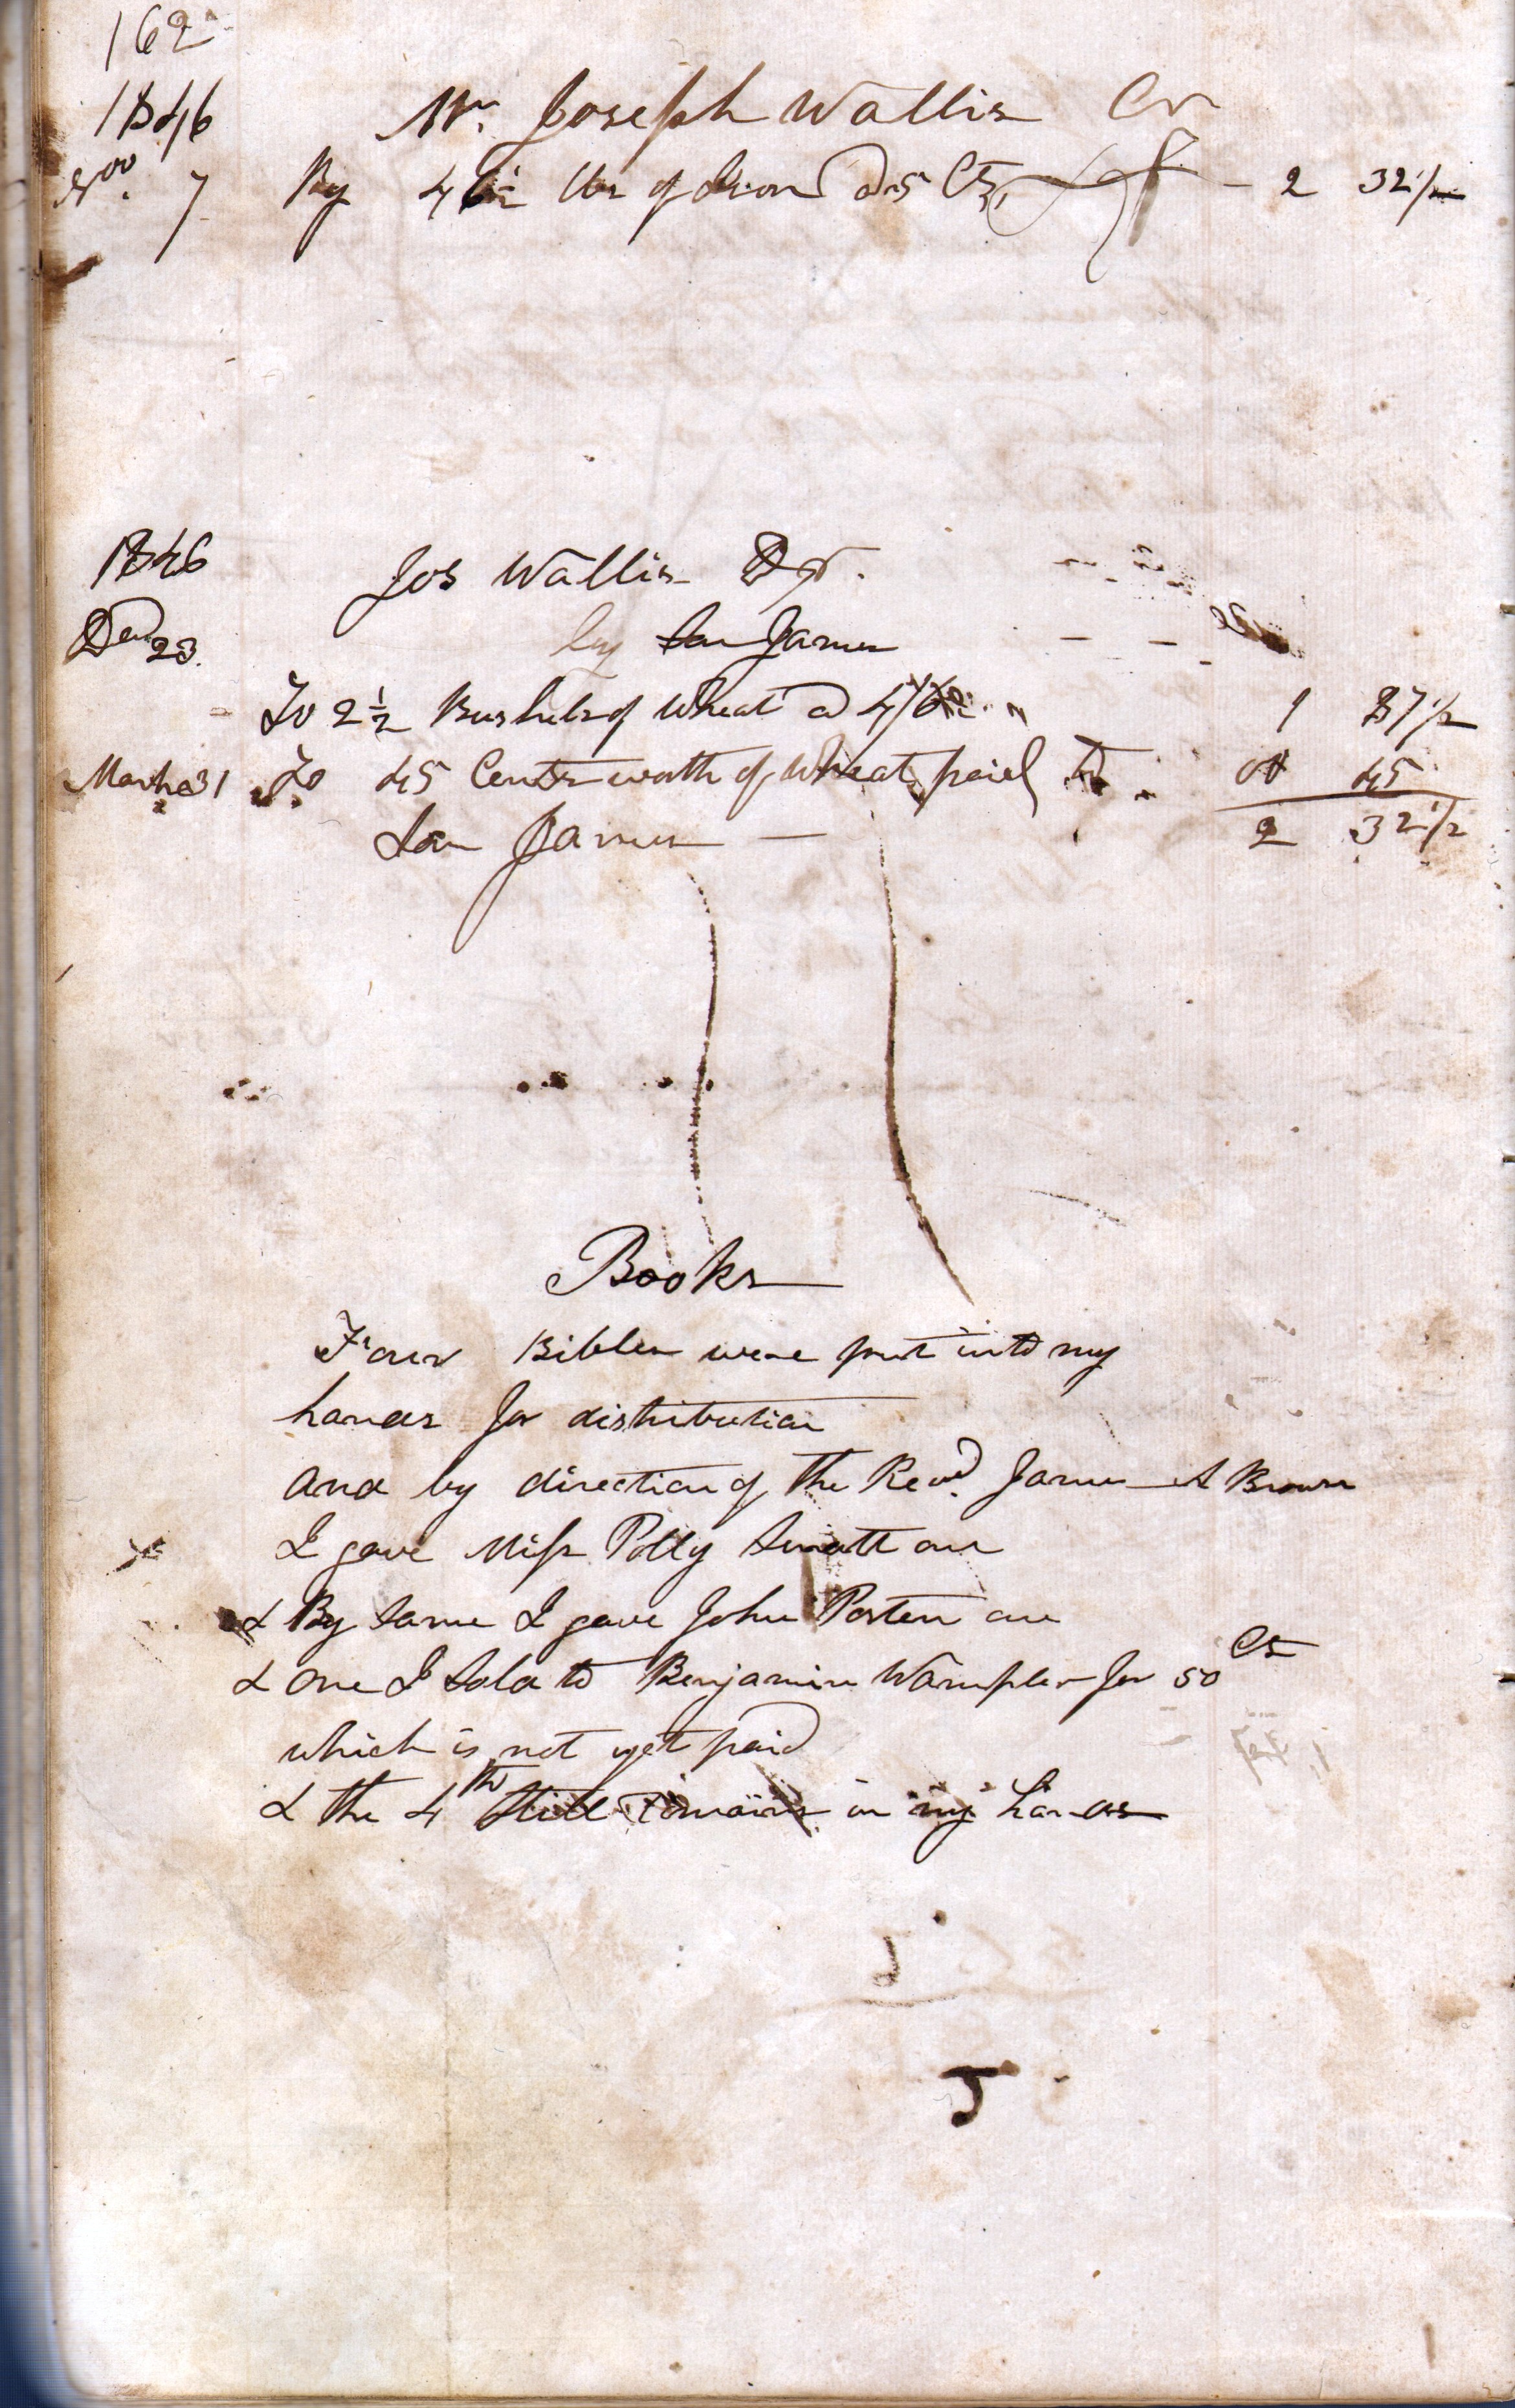 162
1846 Mr. Joseph Wallis Cr
Nov. 7 By 46½ lbs of Iron a 5 Cts, - 2 32 1/2
1846 Jos Wallis Dr.
Dec 23. by Son James
To 2 1/2 Bushels of Wheat a 4/6 1 87 1/2
March 31 To 45 Cents worth of Wheat paid to 00 45
Son James — 2 32 1/2
Books
Four Bibles were put into my
hands for distribution
and by direction of the Revd. James A Brown
I gave Miss Polly one
& By same I gave John Porten one
& one I sold to Benjamin Wampler for 50 Cts
which is not yet paid
& the 4th Still remains in my hands
J